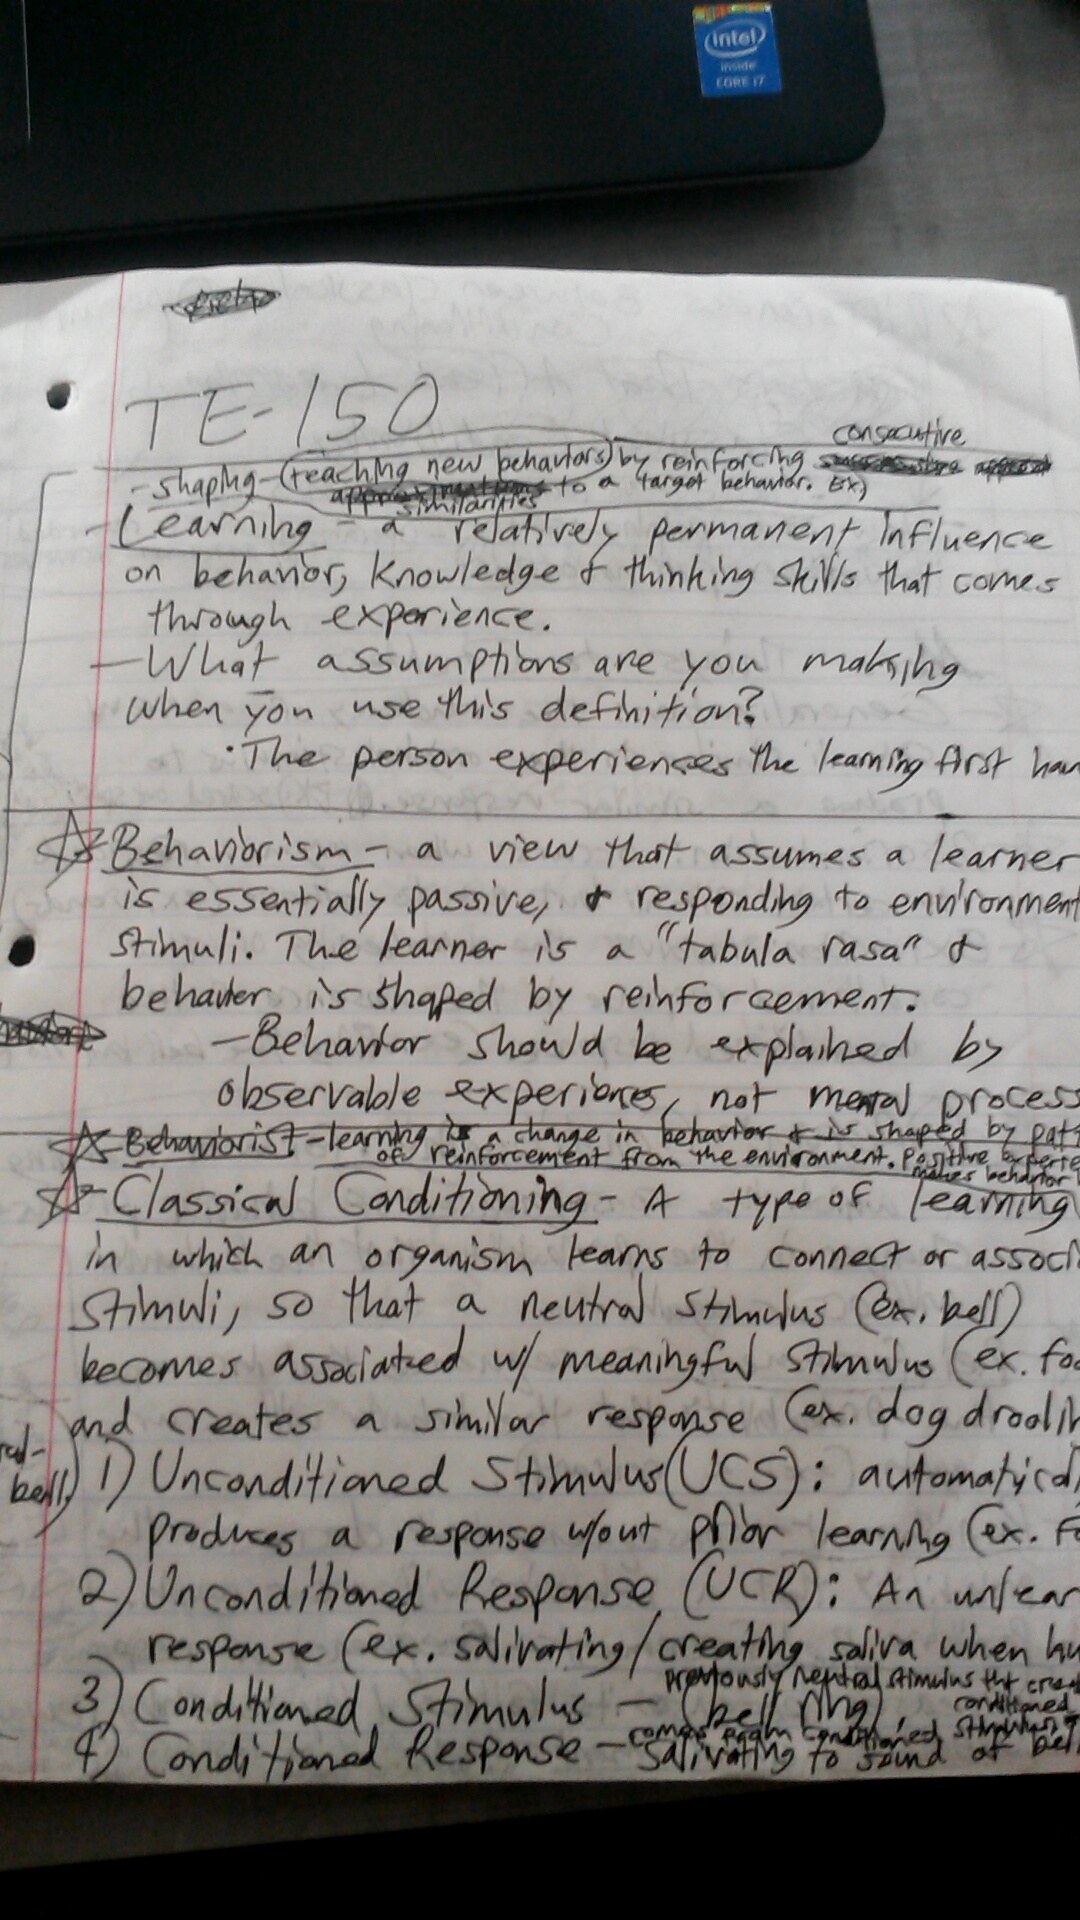 intel
inside
CORE i7
TE-150
consecutive
- shaping - (teaching new behaviors) by reinforcing
similarities to a target behavior. Ex)
- Learning - a relatively permanent influence
on behavior, knowledge & thinking skills that comes
through experience.
- What assumptions are you making
when you use this definition?
• The person experiences the learning first han
☆ Behaviorism - a view that assumes a learner
is essentially passive, & responding to environment
stimuli. The learner is a "tabula rasa" &
behavior is shaped by reinforcement.
- Behavior should be explained by
observable experiences, not mental process
☆ Behaviorist - learning is a change in behavior & is shaped by patt
of reinforcement from the environment. Positive experie
makes behavior
☆ Classical Conditioning - A type of learning
in which an organism learns to connect or associ
stimuli, so that a neutral stimulus (ex. bell)
becomes associated w/ meaningful stimulus (ex. foo
and creates a similar response (ex. dog droolin
bell)
1) Unconditioned Stimulus (UCS): automatical
produces a response w/out prior learning (ex. Fo
2) Unconditioned Response (UCR): An unlear
response (ex. salivating/creating saliva when hu
previously neutral stimulus tht creat
3) Conditioned Stimulus - (bell ring), conditioned
comes from conditioned stimulus
4) Conditioned Response - salivating to sound of bell